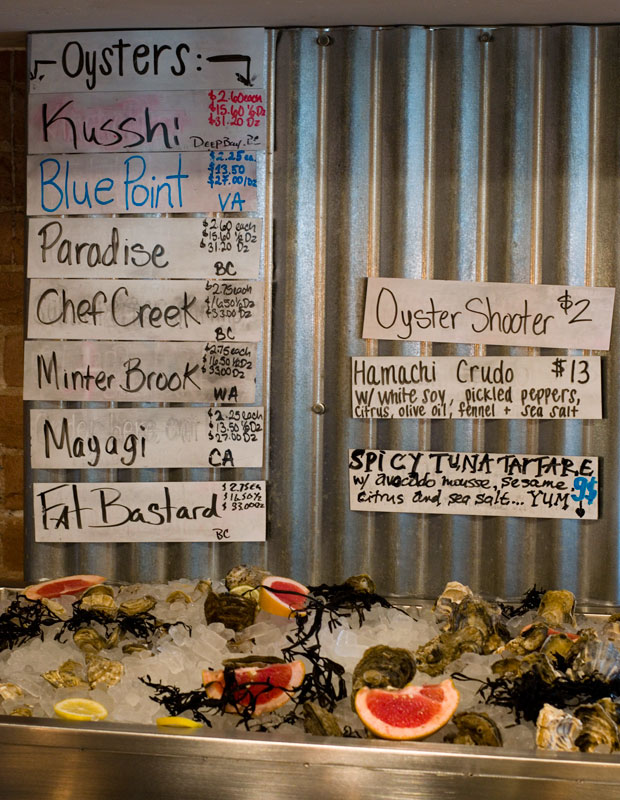 Oysters:
Kusshi
$2.60 each
$15.60 ½ Dz
$31.20 Dz
Deep Bay, BC
Blue Point
$2.25 ea
$13.50
$27.00/Dz
VA
Paradise
$2.60 each
$15.60 ½ Dz
$31.20 Dz
BC
Chef Creek
$2.75 each
$16.50 ½ Dz
$33.00 Dz
BC
Minter Brook
$2.75 each
$16.50 ½ Dz
$33.00 Dz
WA
Mayagi
$2.25 each
$13.50 ½ Dz
$27.00 Dz
CA
Fat Bastard
$2.75 ea
$16.50 ½
$33.00 Dz
BC
Oyster Shooter $2
Hamachi Crudo $13
w/ white soy, pickled peppers,
citrus, olive oil, fennel + sea salt
SPICY TUNA TARTARE
w/ avocado mousse, sesame
citrus and sea salt... YUM
9$